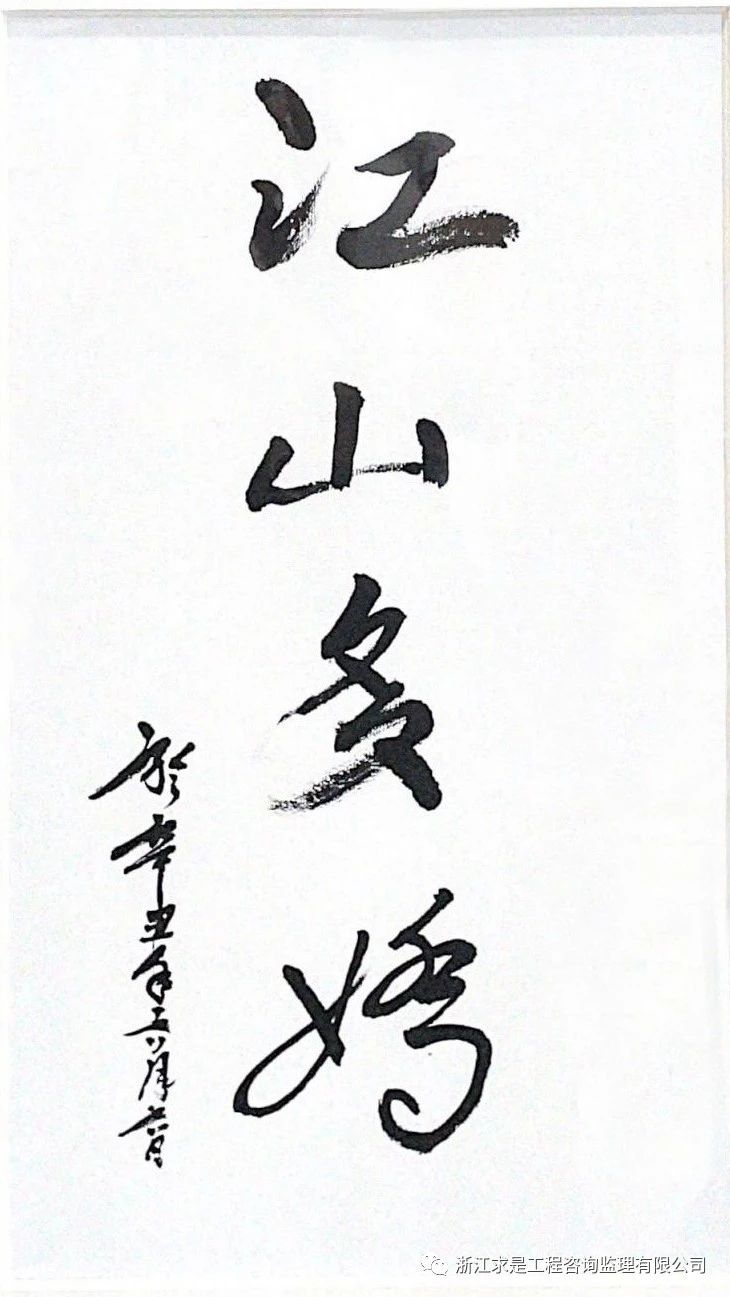 江山多嬌
於辛丑年五月
浙江求是工程咨询监理有限公司